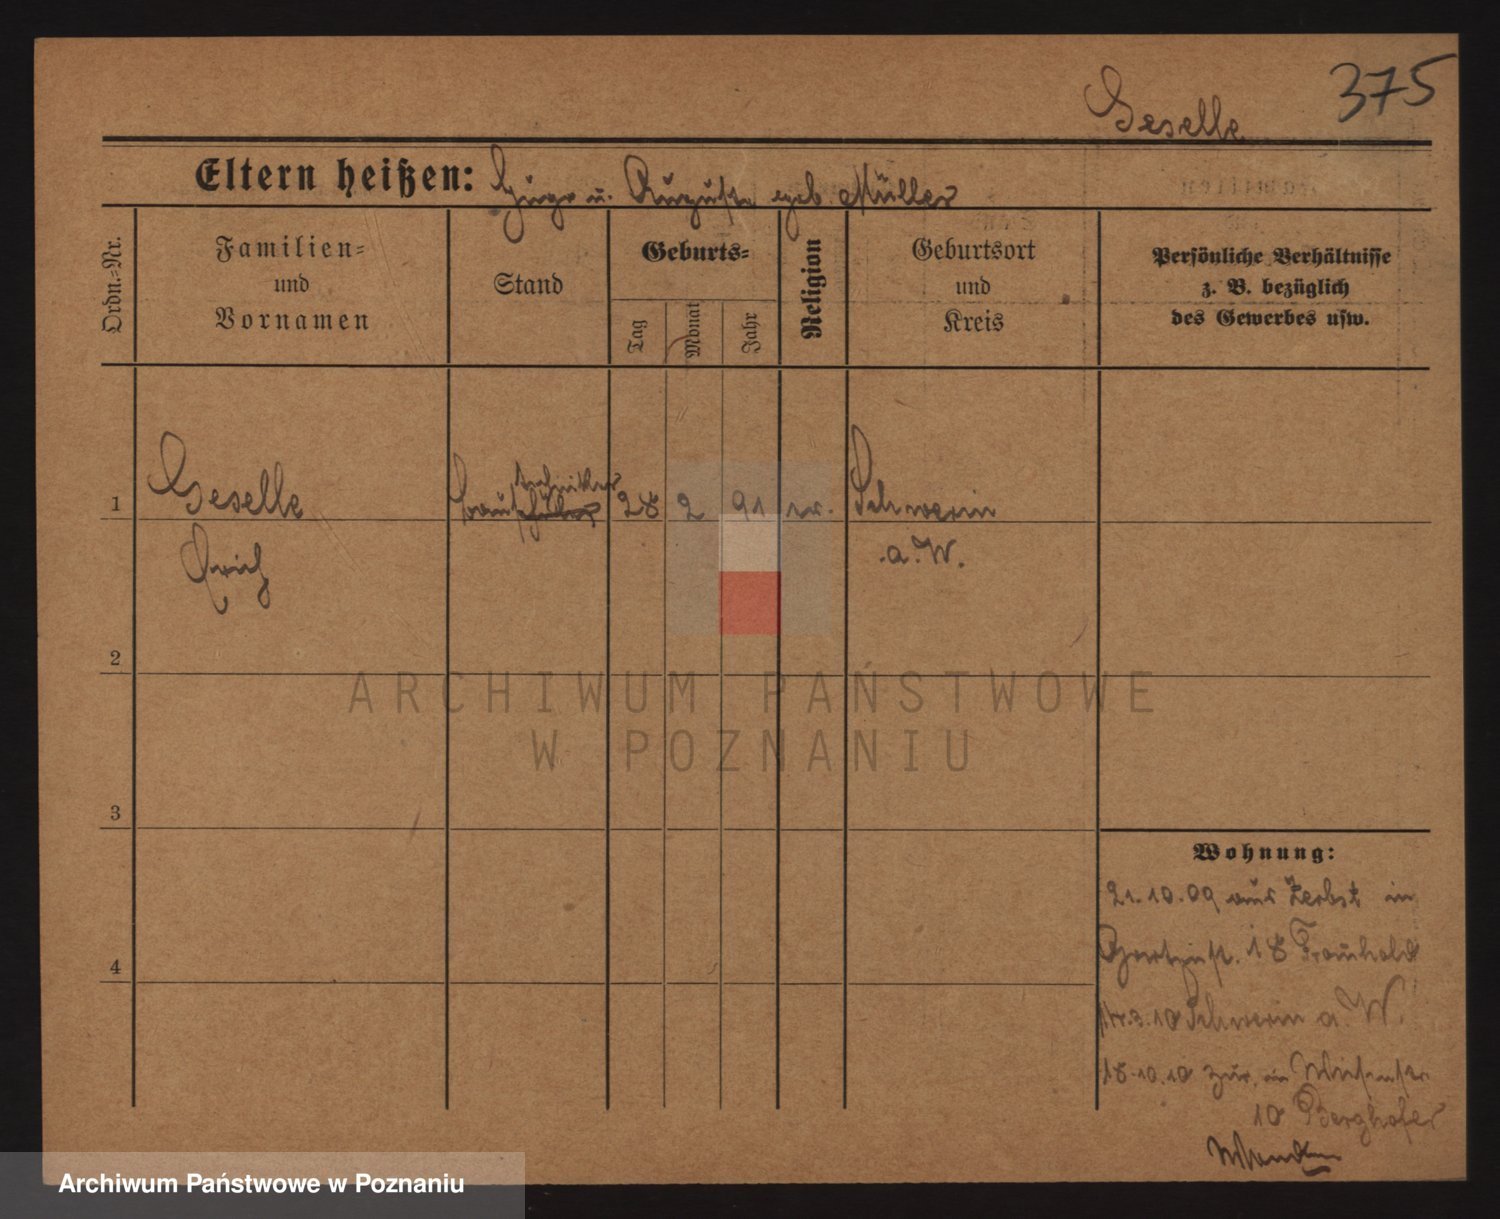 375
Geselle
Eltern heißen: Hugo u. Auguste geb. Müller
Ordn.-Nr.
Familien-
und
Vornamen
Stand
Geburts-
Tag
Monat
Jahr
Religion
Geburtsort
und
Kreis
Persönliche Verhältnisse
z. B. bezüglich
des Gewerbes usw.
techniker
1 Geselle Bauschüler 28 2 91 ev. Schwerin
Erich a. W.
2
3
4
Wohnung:
21.10.09 aus Zerbst in
18 Trauhold
3.10 Schwerin a. W.
18.10.10 zur. in
10 Berghofer
ARCHIWUM PAŃSTWOWE
W POZNANIU
Archiwum Państwowe w Poznaniu